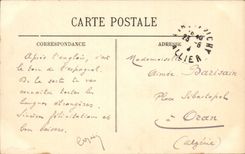 CARTE POSTALE
CORRESPONDANCE
ADRESSE
Après l'anglais, c'est
le tour de l'espagnol.
De la sorte tu vas
connaître toutes les
langues étrangères.
Sincères félicitations et
bon baisers.
Mademoiselle
Aimée Barisain
Place Sébastopol
à Oran
(Algérie)